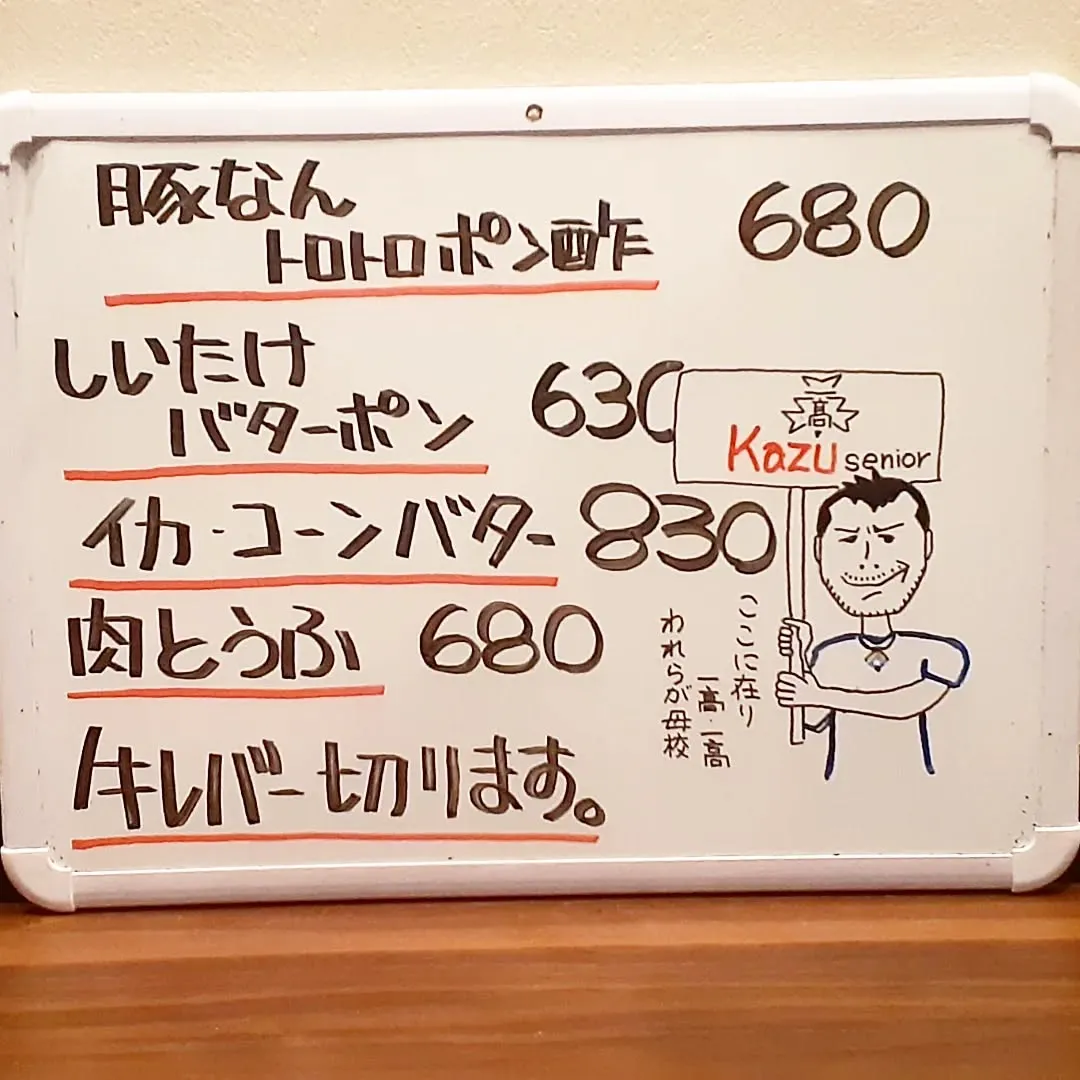 豚なん
トロトロポン酢 680
しいたけ
バターポン 630
イカ・コーンバター 830
肉とうふ 680
イキレバー切ります。
高
Kazu senior
ここに在り
一高・一高
われらが母校